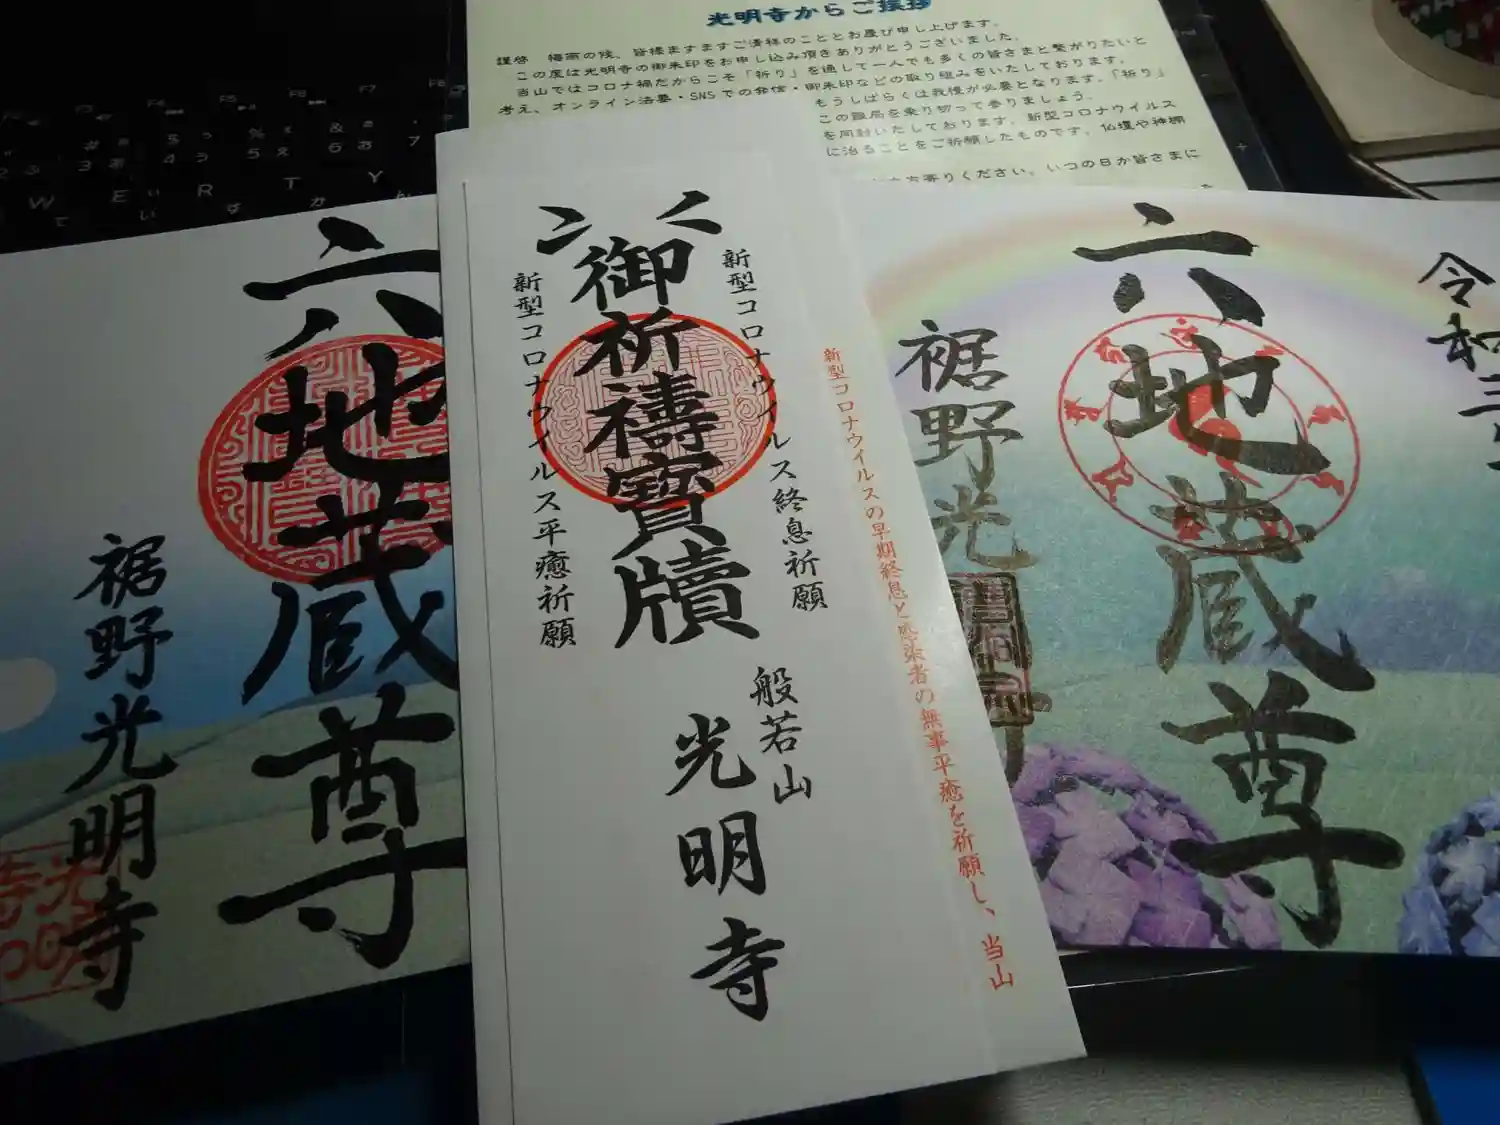 光明寺からご挨拶
謹啓 梅雨の候、皆様ますますご清祥のこととお慶び申し上げます。
この度は光明寺の御朱印をお申し込み頂きありがとうございました。
当山ではコロナ禍だからこそ「祈り」を通して一人でも多くの皆さまと繋がりたいと
考え、オンライン法要・SNSでの発信・御朱印などの取り組みをいたしております。
もうしばらくは我慢が必要となります。「祈り」
この難局を乗り切って参りましょう。
を同封いたしております。新型コロナウイルス
に治ることをご祈願したものです。仏壇や神棚
寄りください。いつの日か皆さまに
六地蔵尊
裾野光明寺
新型コロナウイルス終息祈願
御祈禱寶牘
新型コロナウイルス平癒祈願
般若山
光明寺
新型コロナウイルスの早期終息と感染者の無事平癒を祈願し、当山
令和三
六地蔵尊
裾野光明寺